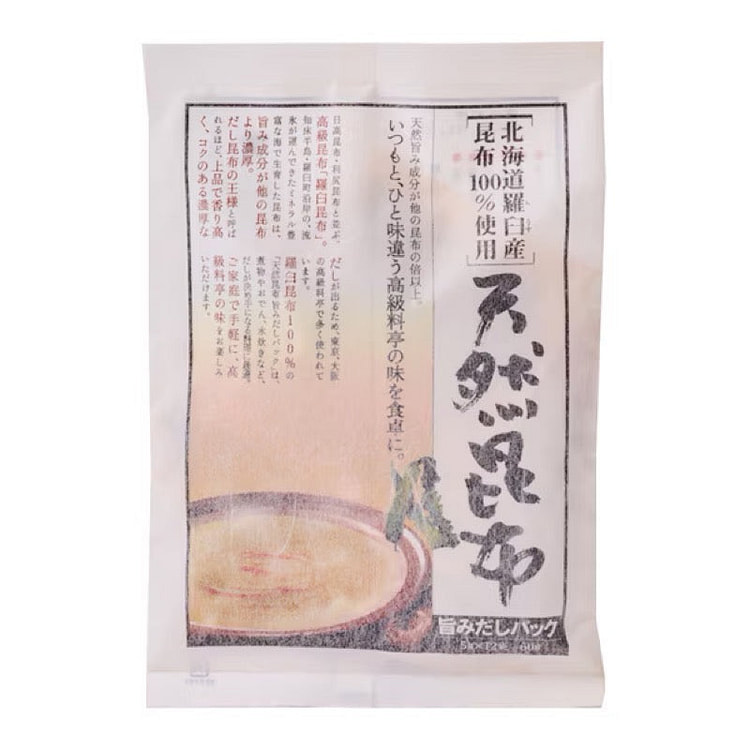 北海道羅臼産
昆布100%使用
天然昆布
旨みだしパック
5g×12袋 60g
天然旨み成分が他の昆布の倍以上。
いつもと、ひと味違う高級料亭の味を食卓に。
日高昆布・利尻昆布と並ぶ、
高級昆布「羅臼昆布」。
知床半島・羅臼町沿岸の、流
氷が運んできたミネラル豊
富な海で生育した昆布は、
旨み成分が他の昆布
より濃厚。
だし昆布の王様と呼ば
れるほど、上品で香り高
く、コクのある濃厚な
だしが出るため、東京、大阪
の高級料亭で多く使われて
います。
羅臼昆布100%の
「天然昆布旨みだしパック」は、
煮物やおでん、水炊きなど、
だしが決め手になる料理に最適。
ご家庭で手軽に、高
級料亭の味をお楽しみ
いただけます。